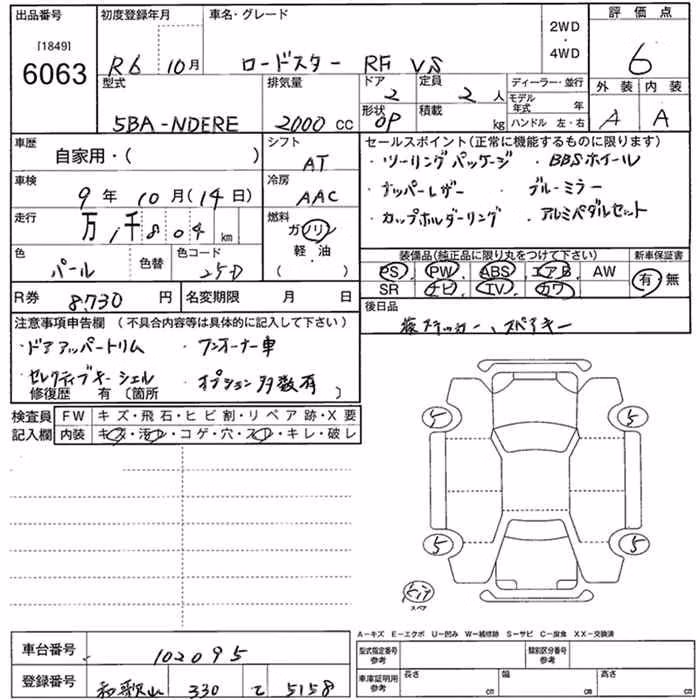 出品番号
[1849]
6063
初度登録年月
R6 10月
車名・グレード
ロードスター RF VS
2WD
・
4WD
評価点
6
型式
5BA-NDERE
排気量
2000 cc
ドア
2
定員
2 人
形状
OP
積載
kg
ディーラー・並行
モデル年式 年
ハンドル 左・右
外装 内装
A A
車歴
自家用・( )
シフト
AT
車検
9年 10月(14日)
冷房
AAC
走行
万 1千804 km
燃料
ガソリン
軽・油
( )
色
パール
色替
色コード
25D
R券 8,730 円
名変期限 月 日
セールスポイント(正常に機能するものに限ります)
・ツーリングパッケージ ・BBSホイール
・ナッパーレザー ・ブルーミラー
・カップホルダーリング ・アルミペダルセット
装備品(純正品に限り丸をつけて下さい)
PS PW ABS エアB AW
SR ナビ TV カワ
新車保証書
有・無
後日品
、スペアキー
注意事項申告欄 (不具合内容等は具体的に記入して下さい)
・ドアアッパートリム ・ワンオーナー車
・セレクティブキーシェル ・オプション多数有
修復歴 有(箇所 )
検査員記入欄
FW キズ・飛石・ヒビ割・リペア跡・X要
内装 キズ・汚れ・コゲ・穴・スレ・キレ・破レ
5 5
5 5
スペア
A-キズ E-エクボ U-凹み W-補修跡 S-サビ C-腐食 XX-交換済
車台番号 102095
登録番号 和歌山 330 て 5158
型式指定番号 参考
類別区分番号 参考
車庫証明用 参考
長さ cm 幅 cm 高さ cm